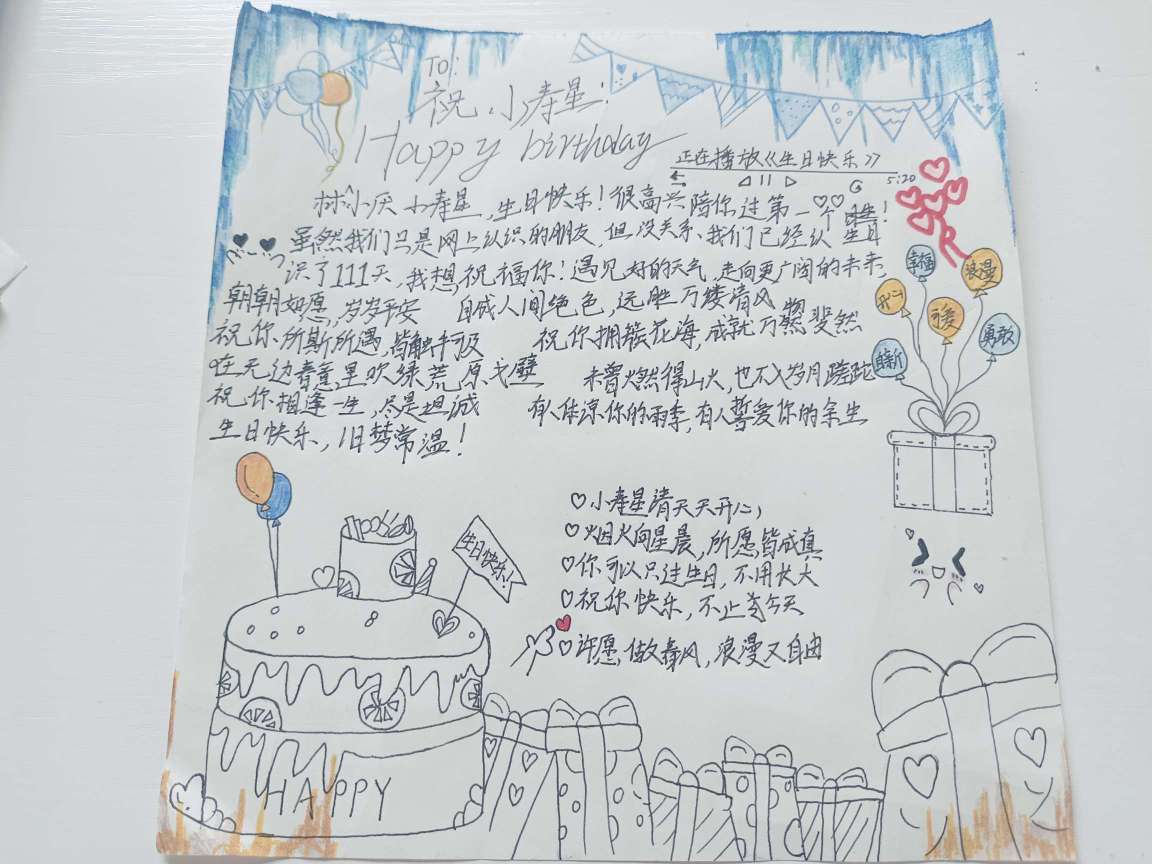 To:
祝小寿星:
Happy birthday
正在播放《生日快乐》
5:20
小寿星,生日快乐!很高兴陪你过第一个生日!
虽然我们只是网上认识的朋友,但没关系,我们已经认
识了111天,我想祝福你!遇见好的天气,走向更广阔的未来,
朝朝如愿,岁岁平安 自成人间绝色,远胜万缕清风
祝你所斯所遇,皆触手可及 祝你拥簇花海,成就万般斐然
在无边春意里吹绿荒原戈壁 未曾火然得山火,也不入岁月蹉跎
祝你相逢一生,尽是坦诚 有人体谅你的雨季,有人誓爱你的余生
生日快乐,旧梦常温!
幸福
浪漫
开心
可爱
勇敢
自新
生日快乐!
小寿星请天天开心,
烟火向星晨,所愿皆成真
你可以只过生日,不用长大
祝你快乐,不止于今天
许愿做春风,浪漫又自由
HAPPY